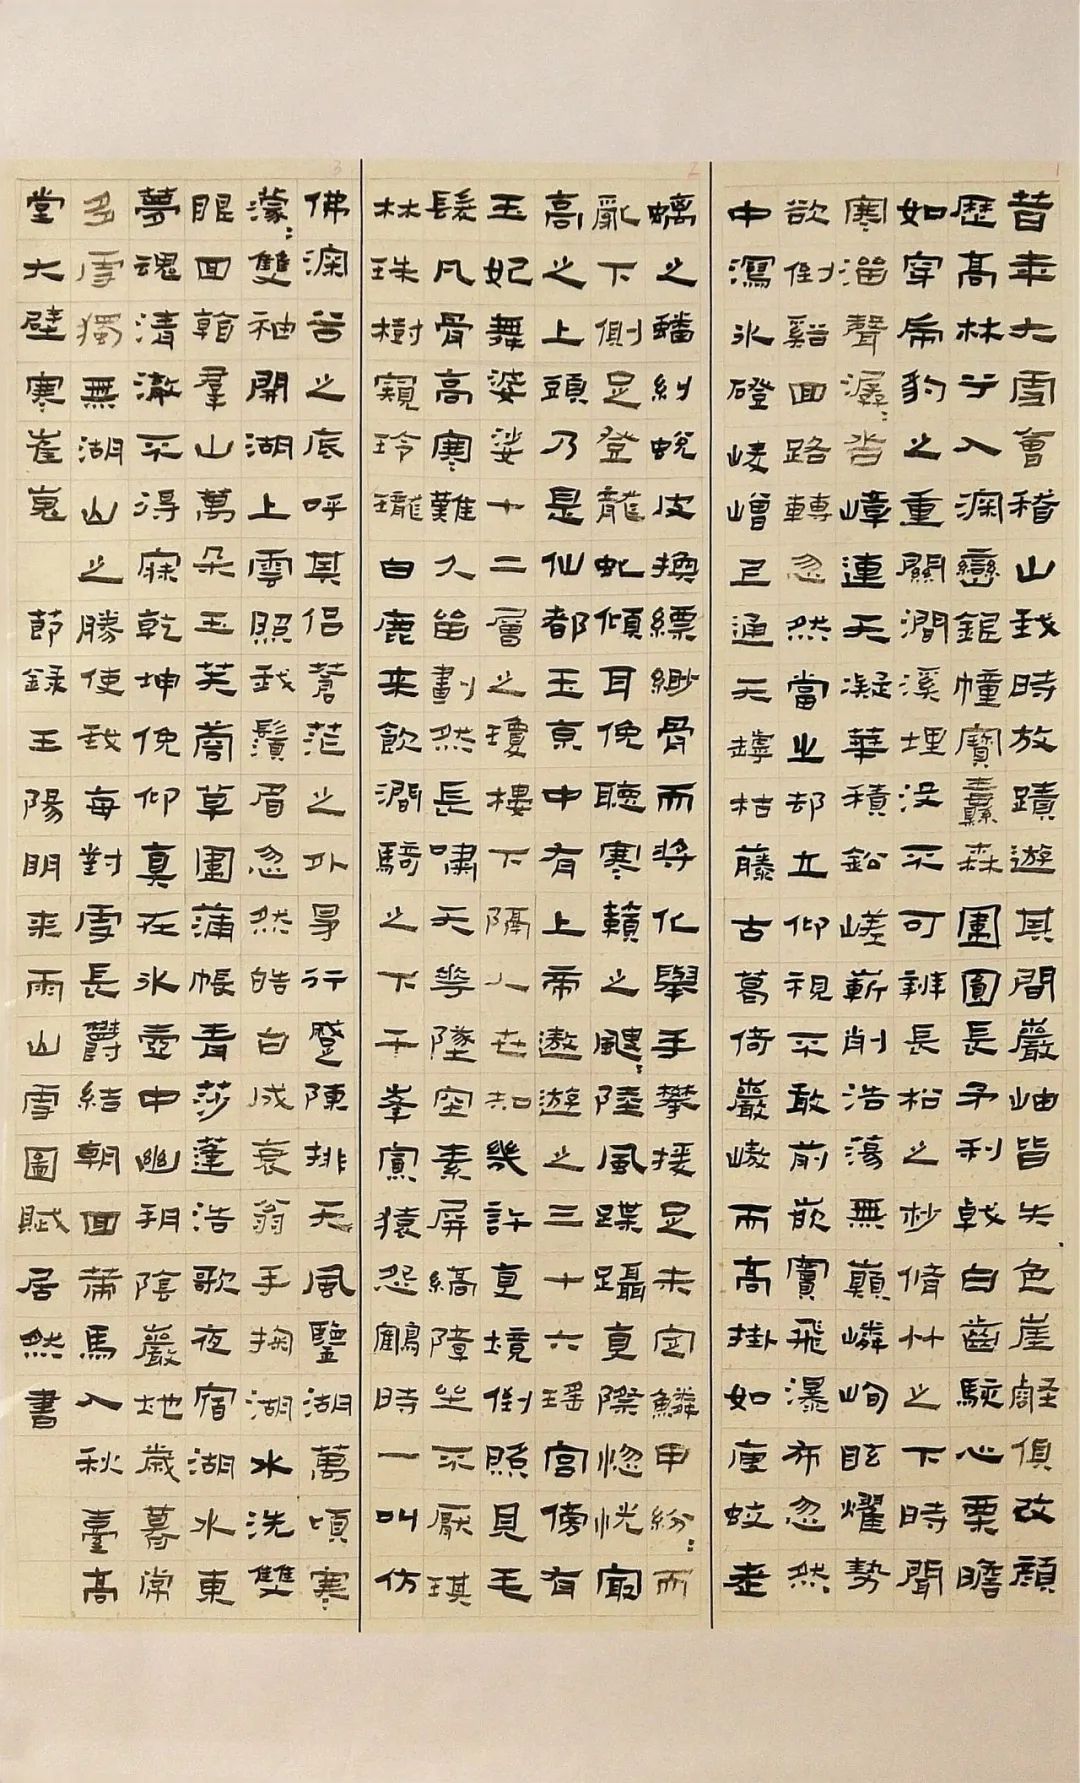 1
昔年大雪會稽山我時放蹟遊其間巖岫皆失色崖壑俱改顏
歷高林兮入深巒銀幢寶纛森圍圓長矛利戟白齒駭心栗膽
如穿虎豹之重關澗溪埋沒不可辨長松之杪脩竹之下時聞
寒溜聲潺〻沓嶂連天凝華積鉛嵯嶄削浩蕩無巔嶙峋眩耀勢
欲倒谿回路轉忽然當之却立仰視不敢前嵌竇飛瀑布忽然
中瀉冰磴崚嶒正通天罅枯藤古葛倚巖嶅而高掛如瘦蛟老
2
螭之蟠糾蛻皮換縹緲骨而將化舉手攀援足未定鱗甲紛〻而
亂下側足登龍虬傾耳俛聽寒籟之颼〻陸風蹀躡直際惚恍最
高之上頭乃是仙都玉京中有上帝遨遊之三十六瑤宮傍有
玉妃舞婆娑十二層之瓊樓下隔人世知幾許真境倒照見毛
髮凡骨高寒難久留劃然長嘯天花墜空素屏縞障坐不厭琪
林珠樹窺玲瓏白鹿來飲澗騎之下千峯寡猿怨鶴時一叫仿
3
佛深谷之底呼其侶蒼茫之外爭行蹙陳排天風鑒湖萬頃寒
濛〻雙袖開湖上雲照我鬚眉忽然皓白成衰翁手掬湖水洗雙
眼回首羣山萬朵玉芙蓉草團蒲帳青莎蓬浩歌夜宿湖水東
夢魂清澈不得寐乾坤俛仰真在冰壺中幽朔陰巖地歲暮常
多雪獨無湖山之勝使我每對雪長鬱結朝回策馬入秋臺高
堂大壁寒崔嵬 節錄王陽明來雨山雪圖賦居然書